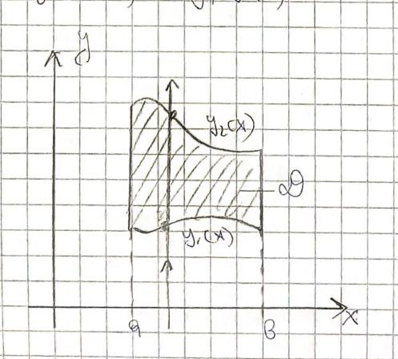 y
y₂(x)
D
y₁(x)
a
B
x